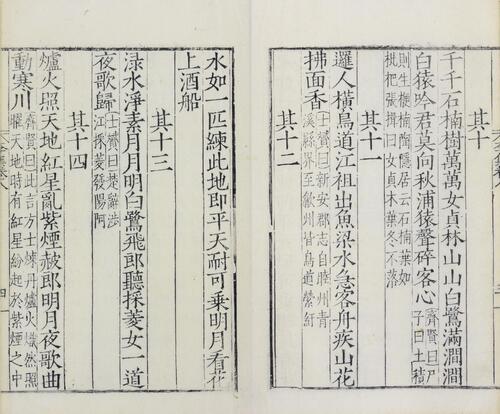 其十
千千石楠樹萬萬女貞林山山白鷺滿澗澗
白猿吟君莫向秋浦猿聲碎客心
齊賢曰尸
子曰土積
則生楩楠陶隱居云石楠葉如
枇杷張揖曰女貞木葉冬不落
其十一
邏人橫鳥道江祖出魚梁水急客舟疾山花
拂面香
士贇曰新安郡志自睦州青
溪縣界至歙州皆鳥道縈紆
其十二
水如一匹練此地即平天耐可乗明月看花
上酒船
其十三
淥水淨素月月明白鷺飛郎聽採菱女一道
夜歌歸
士贇曰楚辭涉
江採菱發陽阿
其十四
爐火照天地紅星亂紫煙赧郎明月夜歌曲
動寒川
齊賢曰此言方士煉丹爐火熾然照
曜天地時有紅星紛起於紫煙之中